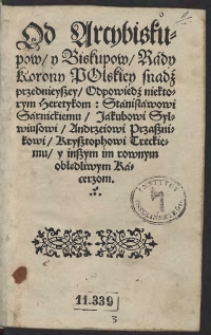 Od Arcybisku-
pow/ y Biskupow/ Rady
Korony POlskiey snadź
przednieyszey/ Odpowiedź niekto-
rym Heretykom: Stanisławowi
Sarnickiemu/ Jakubowi Syl-
wiusowi/ Andrzeiowi Przaśni-
kowi/ Krysztophowi Treckie-
mu/ y inszym im rownym
obłedliwym Ka-
cerzom.
11.339
3